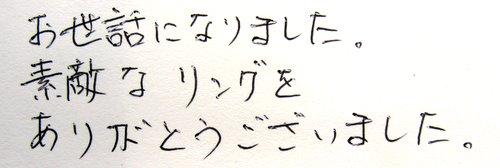 お世話になりました。
素敵なリングを
ありがとうございました。